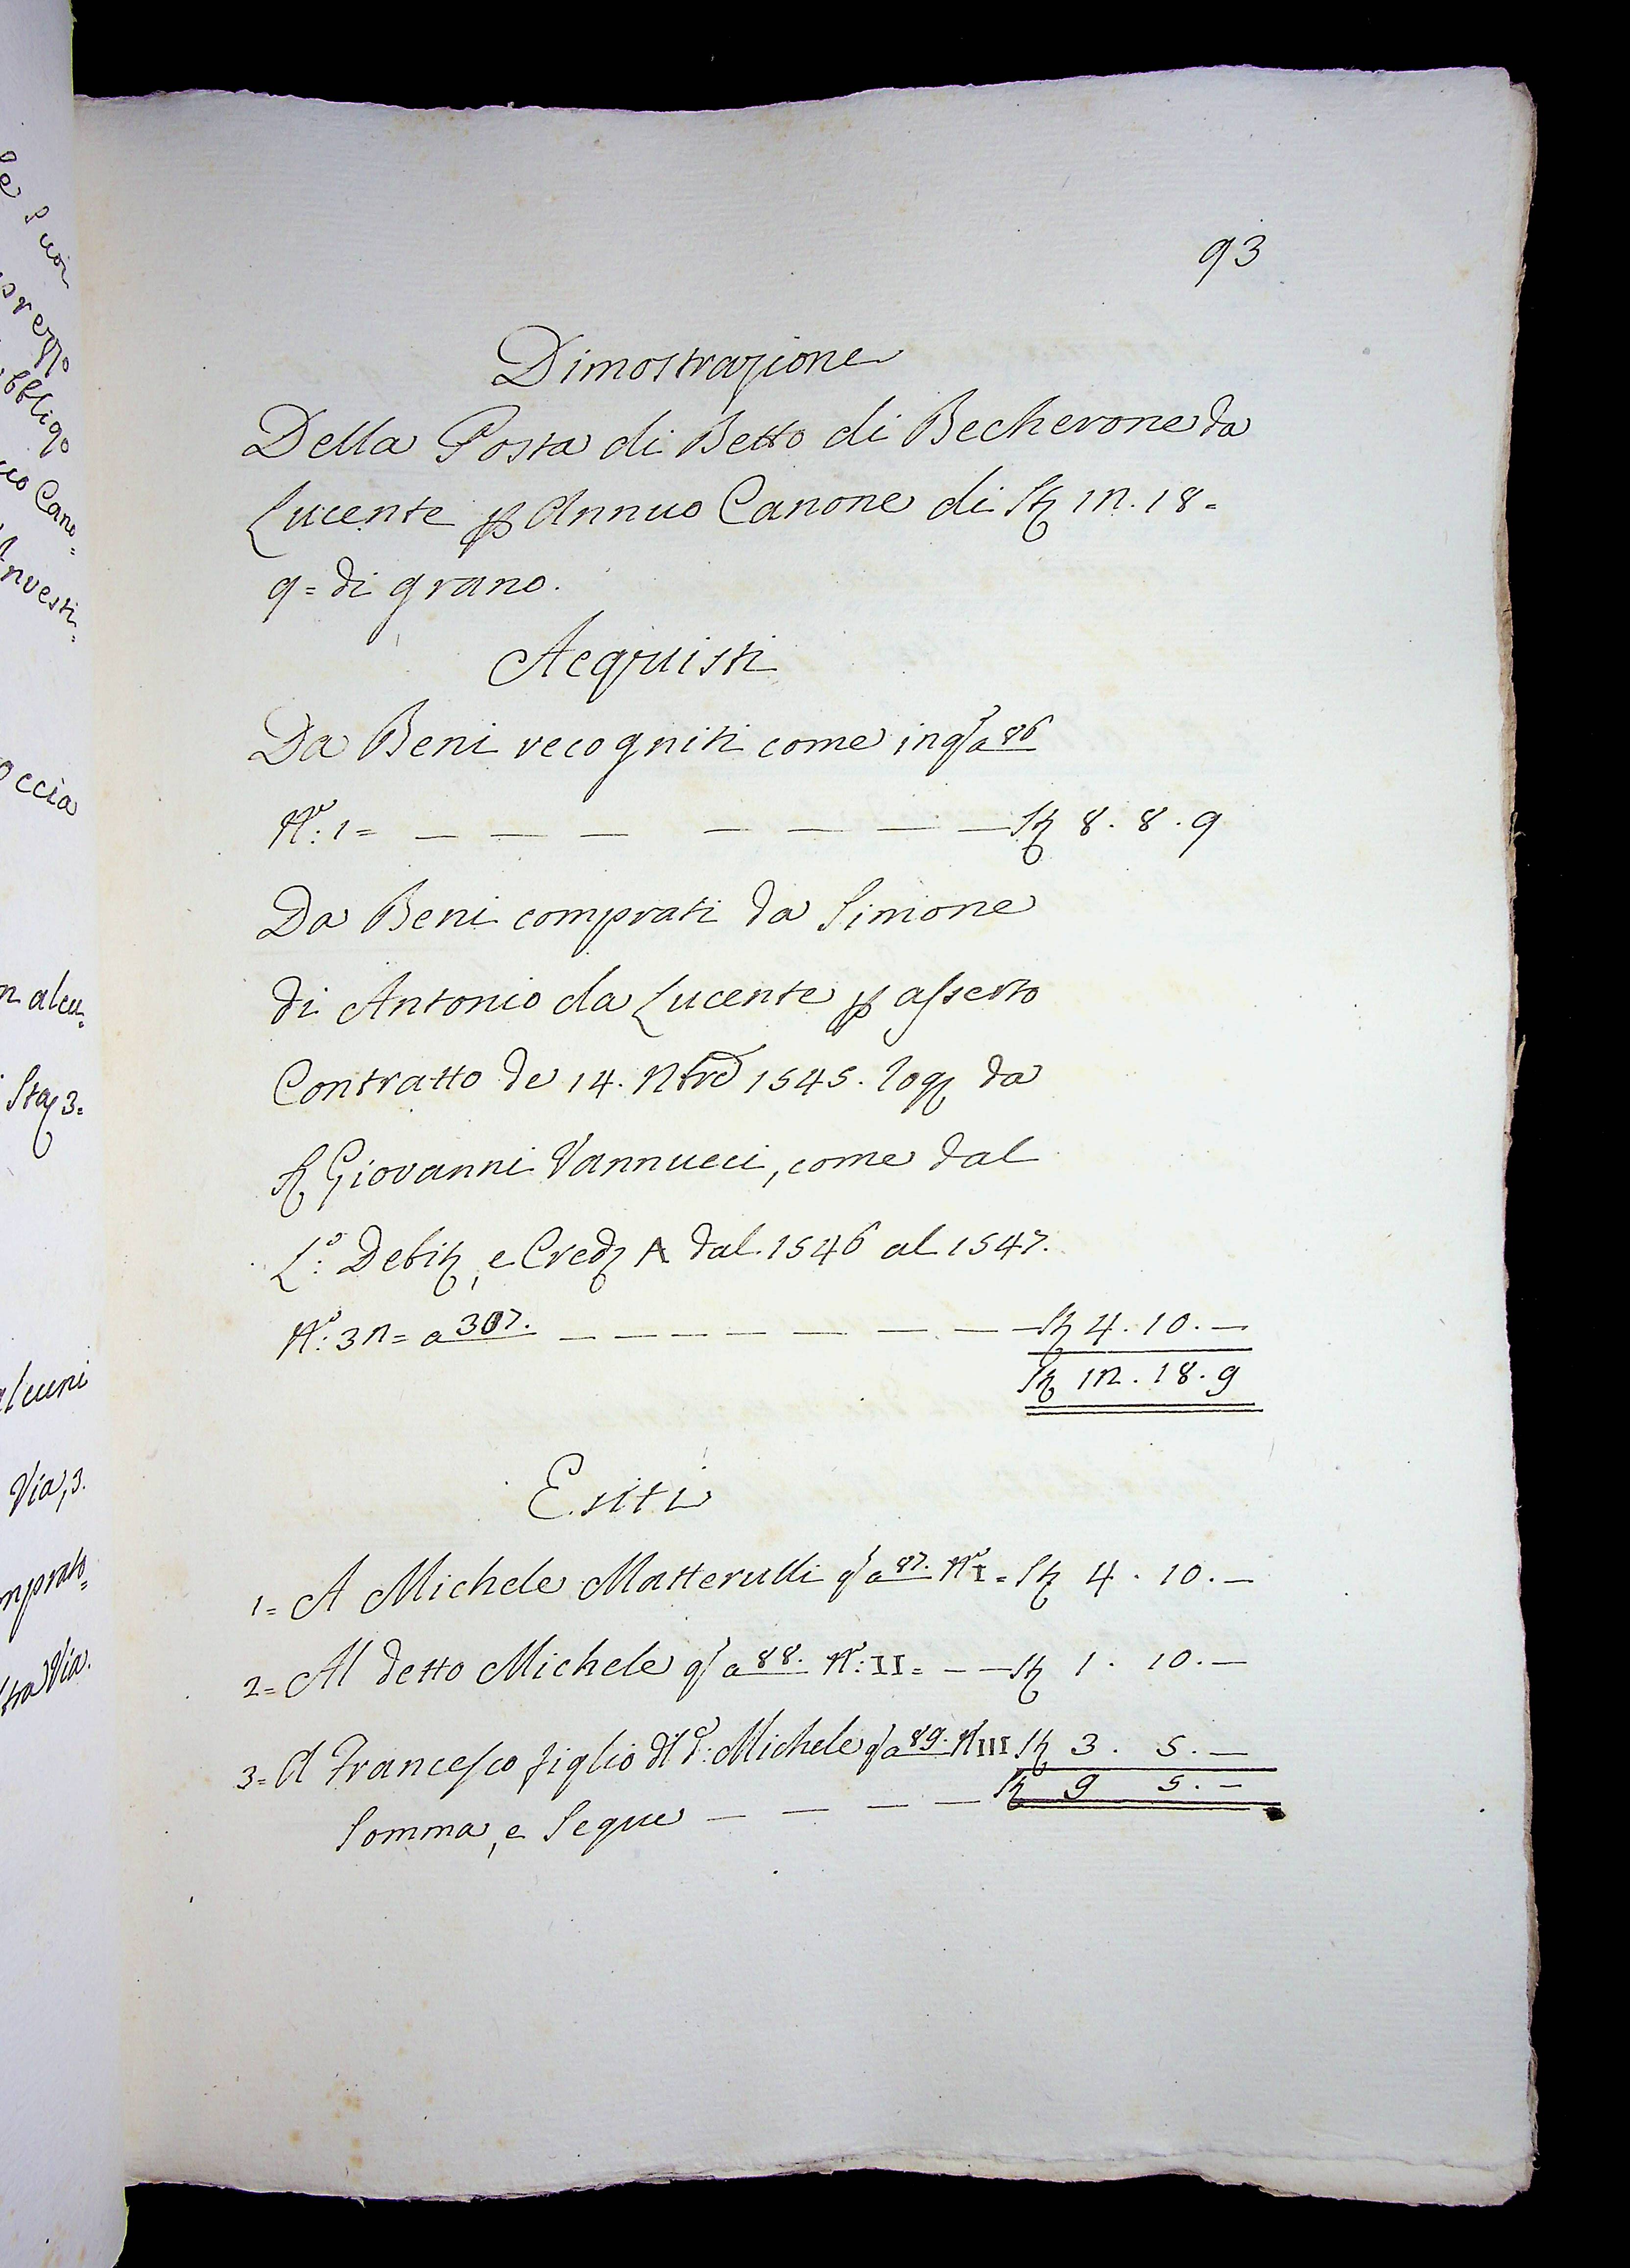 93
Dimostrazione
Della Posta di Betto di Becherone da
Lucente p Annuo Canone di St 12. 18=
9= di grano.
Acquisti
Da Beni recogniti come in q.o a 86
N.o: 1= — — — — — — — St 8. 8. 9
Da Beni comprati da Simone
di Antonio da Lucente p asserto
Contratto de 14. Nbre 1545. rog da
S Giovanni Vannucci, come dal
L.o: Debit, e Cred A dal 1546 al 1547.
N.o: 32= a 307. — — — — — — — St 4. 10. —
St 12. 18. 9
Esiti
1= A Michele Matterulli q.o a 87. N.o I= St 4. 10. —
2= Al detto Michele q.o a 88. N.o: II= — — St 1. 10. —
3= A Francesco figlio dl d.o: Michele q.o a 89. N III St 3. 5. —
Somma, e Segue — — — — St 9 5. —
e Suoi
prezzo
obbligo
Cano=
Investi=
occia
n alcu=
Sta 3=
alcuni
Via, 3.
mprato=
tra Via.